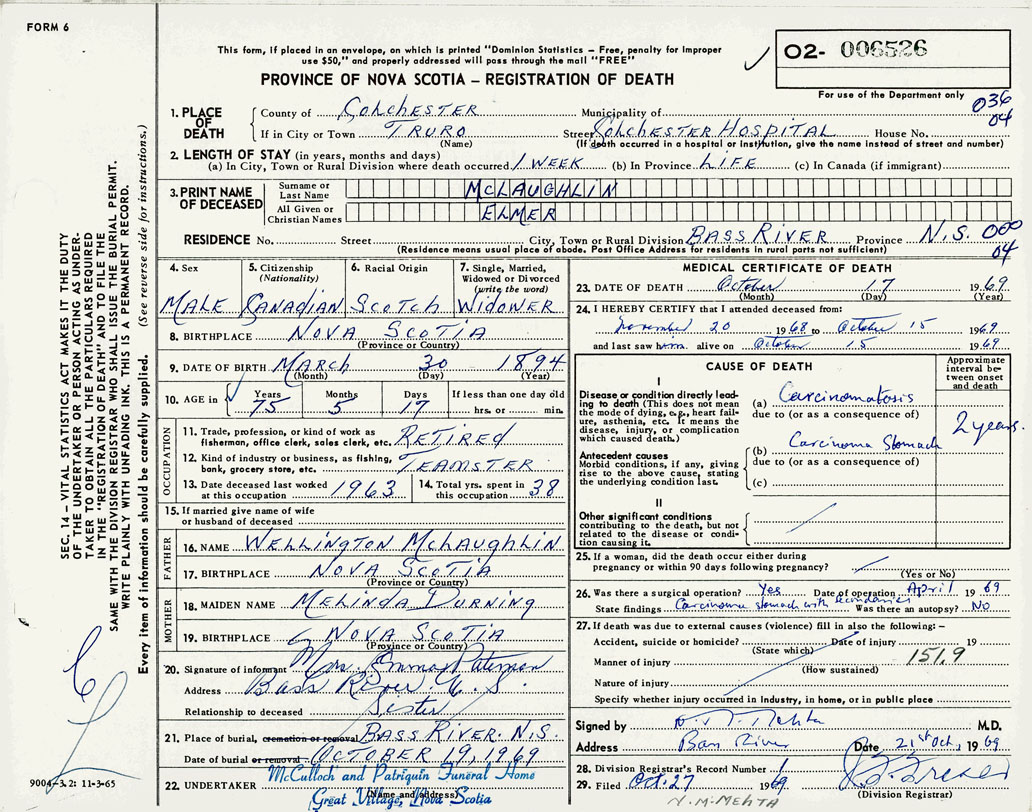 FORM 6
This form, if placed in an envelope, on which is printed "Dominion Statistics – Free, penalty for improper
use $50," and properly addressed will pass through the mail "FREE"
O2- 006526
PROVINCE OF NOVA SCOTIA – REGISTRATION OF DEATH
For use of the Department only
036
04
1. PLACE OF DEATH
County of COLCHESTER Municipality of
If in City or Town TRURO Street COLCHESTER HOSPITAL House No.
(Name) (If death occurred in a hospital or institution, give the name instead of street and number)
2. LENGTH OF STAY (in years, months and days)
(a) In City, Town or Rural Division where death occurred 1 WEEK (b) In Province LIFE (c) In Canada (if immigrant)
3. PRINT NAME OF DECEASED
Surname or Last Name MCLAUGHLIN
All Given or Christian Names ELMER
RESIDENCE No. Street City, Town or Rural Division BASS RIVER Province N.S. 000
(Residence means usual place of abode. Post Office Address for residents in rural parts not sufficient) 04
4. Sex 5. Citizenship (Nationality) 6. Racial Origin 7. Single, Married, Widowed or Divorced (write the word)
MALE CANADIAN SCOTCH WIDOWER
8. BIRTHPLACE NOVA SCOTIA
(Province or Country)
9. DATE OF BIRTH MARCH 30 1894
(Month) (Day) (Year)
10. AGE in Years Months Days If less than one day old
75 5 17 hrs. or min.
OCCUPATION
11. Trade, profession, or kind of work as
fisherman, office clerk, sales clerk, etc. RETIRED
12. Kind of industry or business, as fishing,
bank, grocery store, etc. TEAMSTER
13. Date deceased last worked
at this occupation 1963
14. Total yrs. spent in
this occupation 38
15. If married give name of wife
or husband of deceased
FATHER
16. NAME WELLINGTON MCLAUGHLIN
17. BIRTHPLACE NOVA SCOTIA
(Province or Country)
MOTHER
18. MAIDEN NAME MELINDA DURNING
19. BIRTHPLACE NOVA SCOTIA
(Province or Country)
20. Signature of informant Mrs. Emma Pateman
Address Bass River N.S.
Relationship to deceased Sister
21. Place of burial, cremation or removal BASS RIVER. N.S.
Date of burial or removal OCTOBER 19, 1969
22. UNDERTAKER McCulloch and Patriquin Funeral Home
(Name and address)
Great Village, Nova Scotia
MEDICAL CERTIFICATE OF DEATH
23. DATE OF DEATH October 17 1969
(Month) (Day) (Year)
24. I HEREBY CERTIFY that I attended deceased from:
November 20 1968 to October 15 1969
and last saw him alive on October 15 1969
CAUSE OF DEATH
Approximate interval between onset and death
I
Disease or condition directly lead-
ing to death (This does not mean
the mode of dying, e.g., heart fail-
ure, asthenia, etc. It means the
disease, injury, or complication
which caused death.)
(a) Carcinomatosis
due to (or as a consequence of)
2 years.
Antecedent causes
Morbid conditions, if any, giving
rise to the above cause, stating
the underlying condition last.
(b) Carcinoma Stomach
due to (or as a consequence of)
(c)
II
Other significant conditions
contributing to the death, but not
related to the disease or condi-
tion causing it.
25. If a woman, did the death occur either during
pregnancy or within 90 days following pregnancy?
(Yes or No)
26. Was there a surgical operation? Yes Date of operation April 1969
State findings Carcinoma stomach with secondaries Was there an autopsy? NO
27. If death was due to external causes (violence) fill in also the following: –
Accident, suicide or homicide? Date of injury 19
(State which)
Manner of injury 151.9
(How sustained)
Nature of injury
Specify whether injury occurred in industry, in home, or in public place
Signed by N. M. Mehta M.D.
Address Bass River Date 21st Oct, 1969
28. Division Registrar's Record Number 1
29. Filed Oct. 27 1969
(Division Registrar)
N.M. MEHTA
SEC. 14 – VITAL STATISTICS ACT MAKES IT THE DUTY
OF THE UNDERTAKER OR PERSON ACTING AS UNDER-
TAKER TO OBTAIN ALL THE PARTICULARS REQUIRED
IN THE "REGISTRATION OF DEATH" AND TO FILE THE
SAME WITH THE DIVISION REGISTRAR WHO SHALL ISSUE THE BURIAL PERMIT.
WRITE PLAINLY WITH UNFADING INK. THIS IS A PERMANENT RECORD.
Every item of information should be carefully supplied. (See reverse side for instructions.)
9004-3.2: 11-3-65